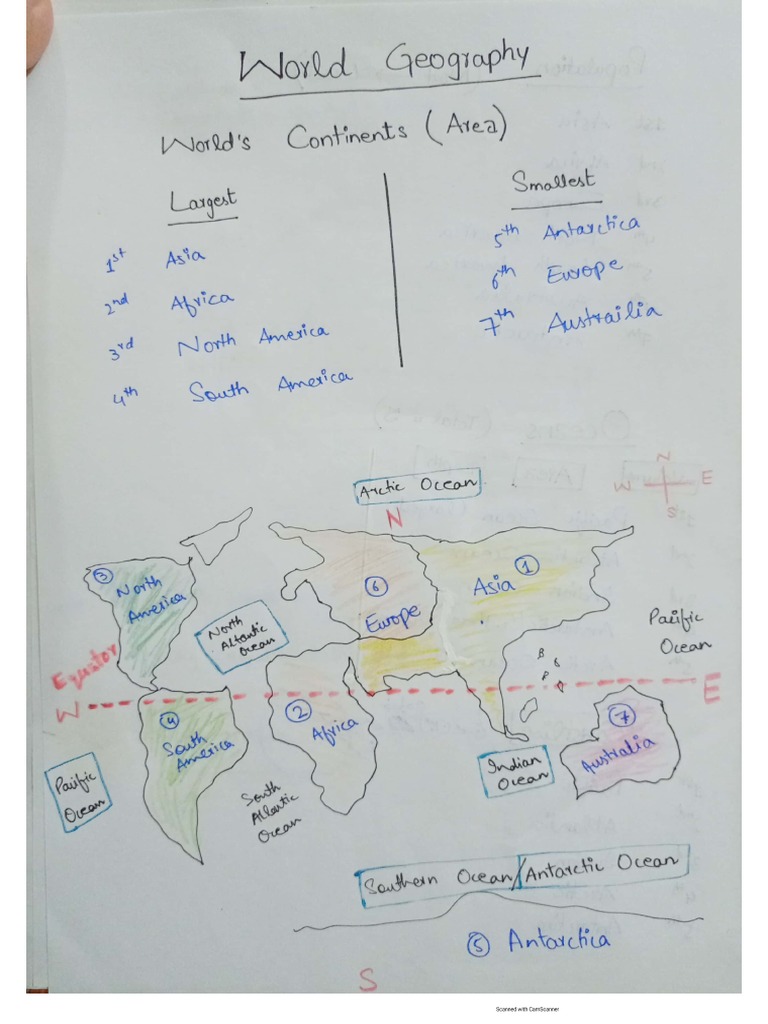 World Geography
World's Continents (Area)
Largest
1st Asia
2nd Africa
3rd North America
4th South America
Smallest
5th Antarctica
6th Europe
7th Austrailia
Arctic Ocean
N
N
W E
S
3
North
America
North
Altantic
Ocean
6
Europe
1
Asia
Pacific
Ocean
Equator
W
E
4
South
America
2
Africa
7
Australia
Pacific
Ocean
South
Atlantic
Ocean
Indian
Ocean
Southern Ocean/Antarctic Ocean
5 Antarctica
S
Scanned with CamScanner